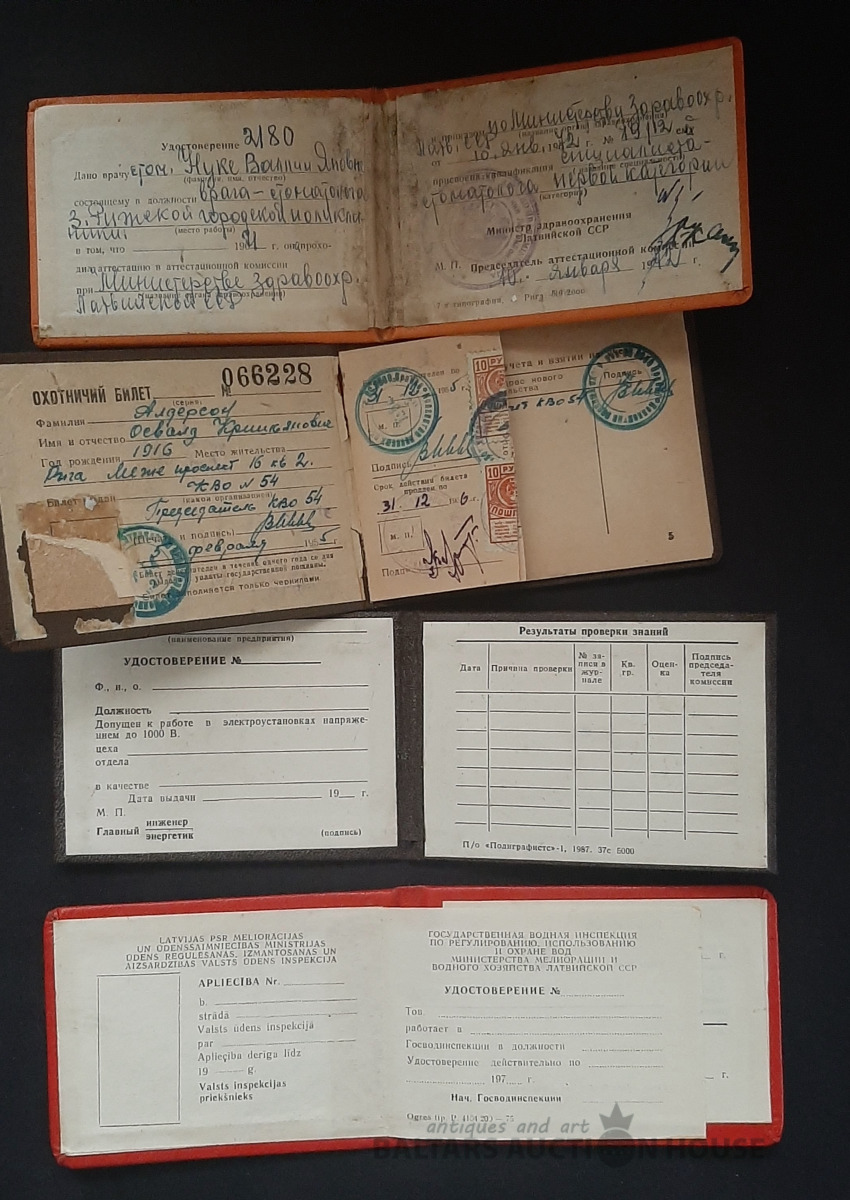 Удостоверение 2180
Дано врачу стом. Нуке Валлии Яновне
(фамилия, имя, отчество)
состоящему в должности врача-стоматолога
3. Рижской городской поликли
ники.
(место работы)
в том, что 19 г. он прохо-
дил аттестацию в аттестационной комиссии
при Министерстве Здравоохр.
Латвийской ССР
по Министерству Здравоохр.
Латв. ССР
от 10. янв. г. №
присвоена квалификация специалиста-
стоматолога первой категории
(категория)
Министр здравоохранения
Латвийской ССР
М. П. Председатель аттестационной комиссии
10. января г.
7 я типография, г. Рига
ОХОТНИЧИЙ БИЛЕТ 066228
(серия)
Фамилия Алдерсон
Имя и отчество Освалд
Год рождения 1916 Место жительства
Рига Меже проспект 16 кв 2.
Билет выдан КВО № 54
(какой организацией)
Председатель КВО 54
и подпись)
февраля
Билет действителен в течение одного года со дня
уплаты государственной пошлины.
заполняется только чернилами
м. п.
Подпись
Срок действия билета
продлен по
31. 12 196 г.
м. п.
10 РУ
10 РУ
ПОШЛ
учета и взятии на
нового
КВО 54
Подпись
5
(наименование предприятия)
УДОСТОВЕРЕНИЕ №
Ф., и., о.
Должность
Допущен к работе в электроустановках напряже-
нием до 1000 В.
цеха
отдела
в качестве
Дата выдачи 19 г.
М. П.
Главный инженер
энергетик (подпись)
Результаты проверки знаний
Дата Причина проверки № за-
писи в
жур-
нале Кв.
гр. Оцен-
ка Подпись
председа-
теля
комиссии
П/о «Полиграфист»-1, 1987. 37с 5000
LATVIJAS PSR MELIORĀCIJAS
UN ŪDENSSAIMNIECĪBAS MINISTRIJAS
ŪDENS REGULĒŠANAS, IZMANTOŠANAS UN
AIZSARDZĪBAS VALSTS ŪDENS INSPEKCIJA
APLIECĪBA Nr.
b.
strādā
Valsts ūdens inspekcijā
par
Apliecība derīga līdz
19 g.
Valsts inspekcijas
priekšnieks
ГОСУДАРСТВЕННАЯ ВОДНАЯ ИНСПЕКЦИЯ
ПО РЕГУЛИРОВАНИЮ, ИСПОЛЬЗОВАНИЮ
И ОХРАНЕ ВОД
МИНИСТЕРСТВА МЕЛИОРАЦИИ И
ВОДНОГО ХОЗЯЙСТВА ЛАТВИЙСКОЙ ССР
УДОСТОВЕРЕНИЕ №
Тов.
работает в
Госводинспекции в должности
Удостоверение действительно по
197 г.
Нач. Госводинспекции
г.
г.
antiques and art
BALTARS AUCTION HOUSE